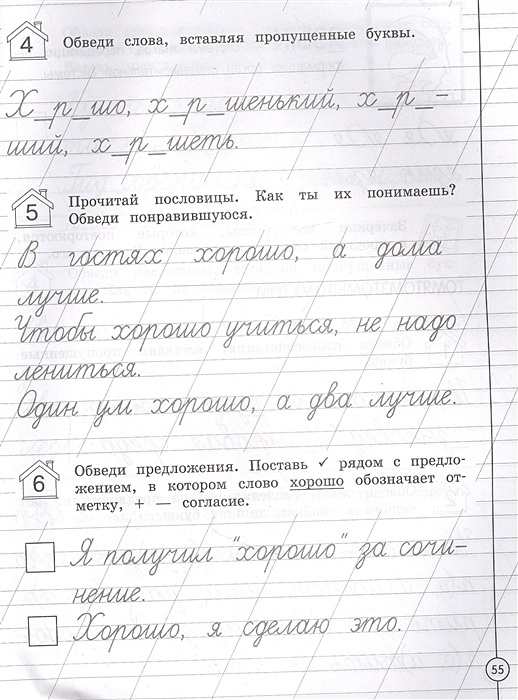 4 Обведи слова, вставляя пропущенные буквы.
Х_р_шо, х_р_шенький, х_р_-
ший, х_р_шеть.
5 Прочитай пословицы. Как ты их понимаешь?
Обведи понравившуюся.
В гостях хорошо, а дома
лучше.
Чтобы хорошо учиться, не надо
лениться.
Один ум хорошо, а два лучше.
6 Обведи предложения. Поставь ✓ рядом с предло-
жением, в котором слово хорошо обозначает от-
метку, + — согласие.
Я получил "хорошо" за сочи-
нение.
Хорошо, я сделаю это.
55